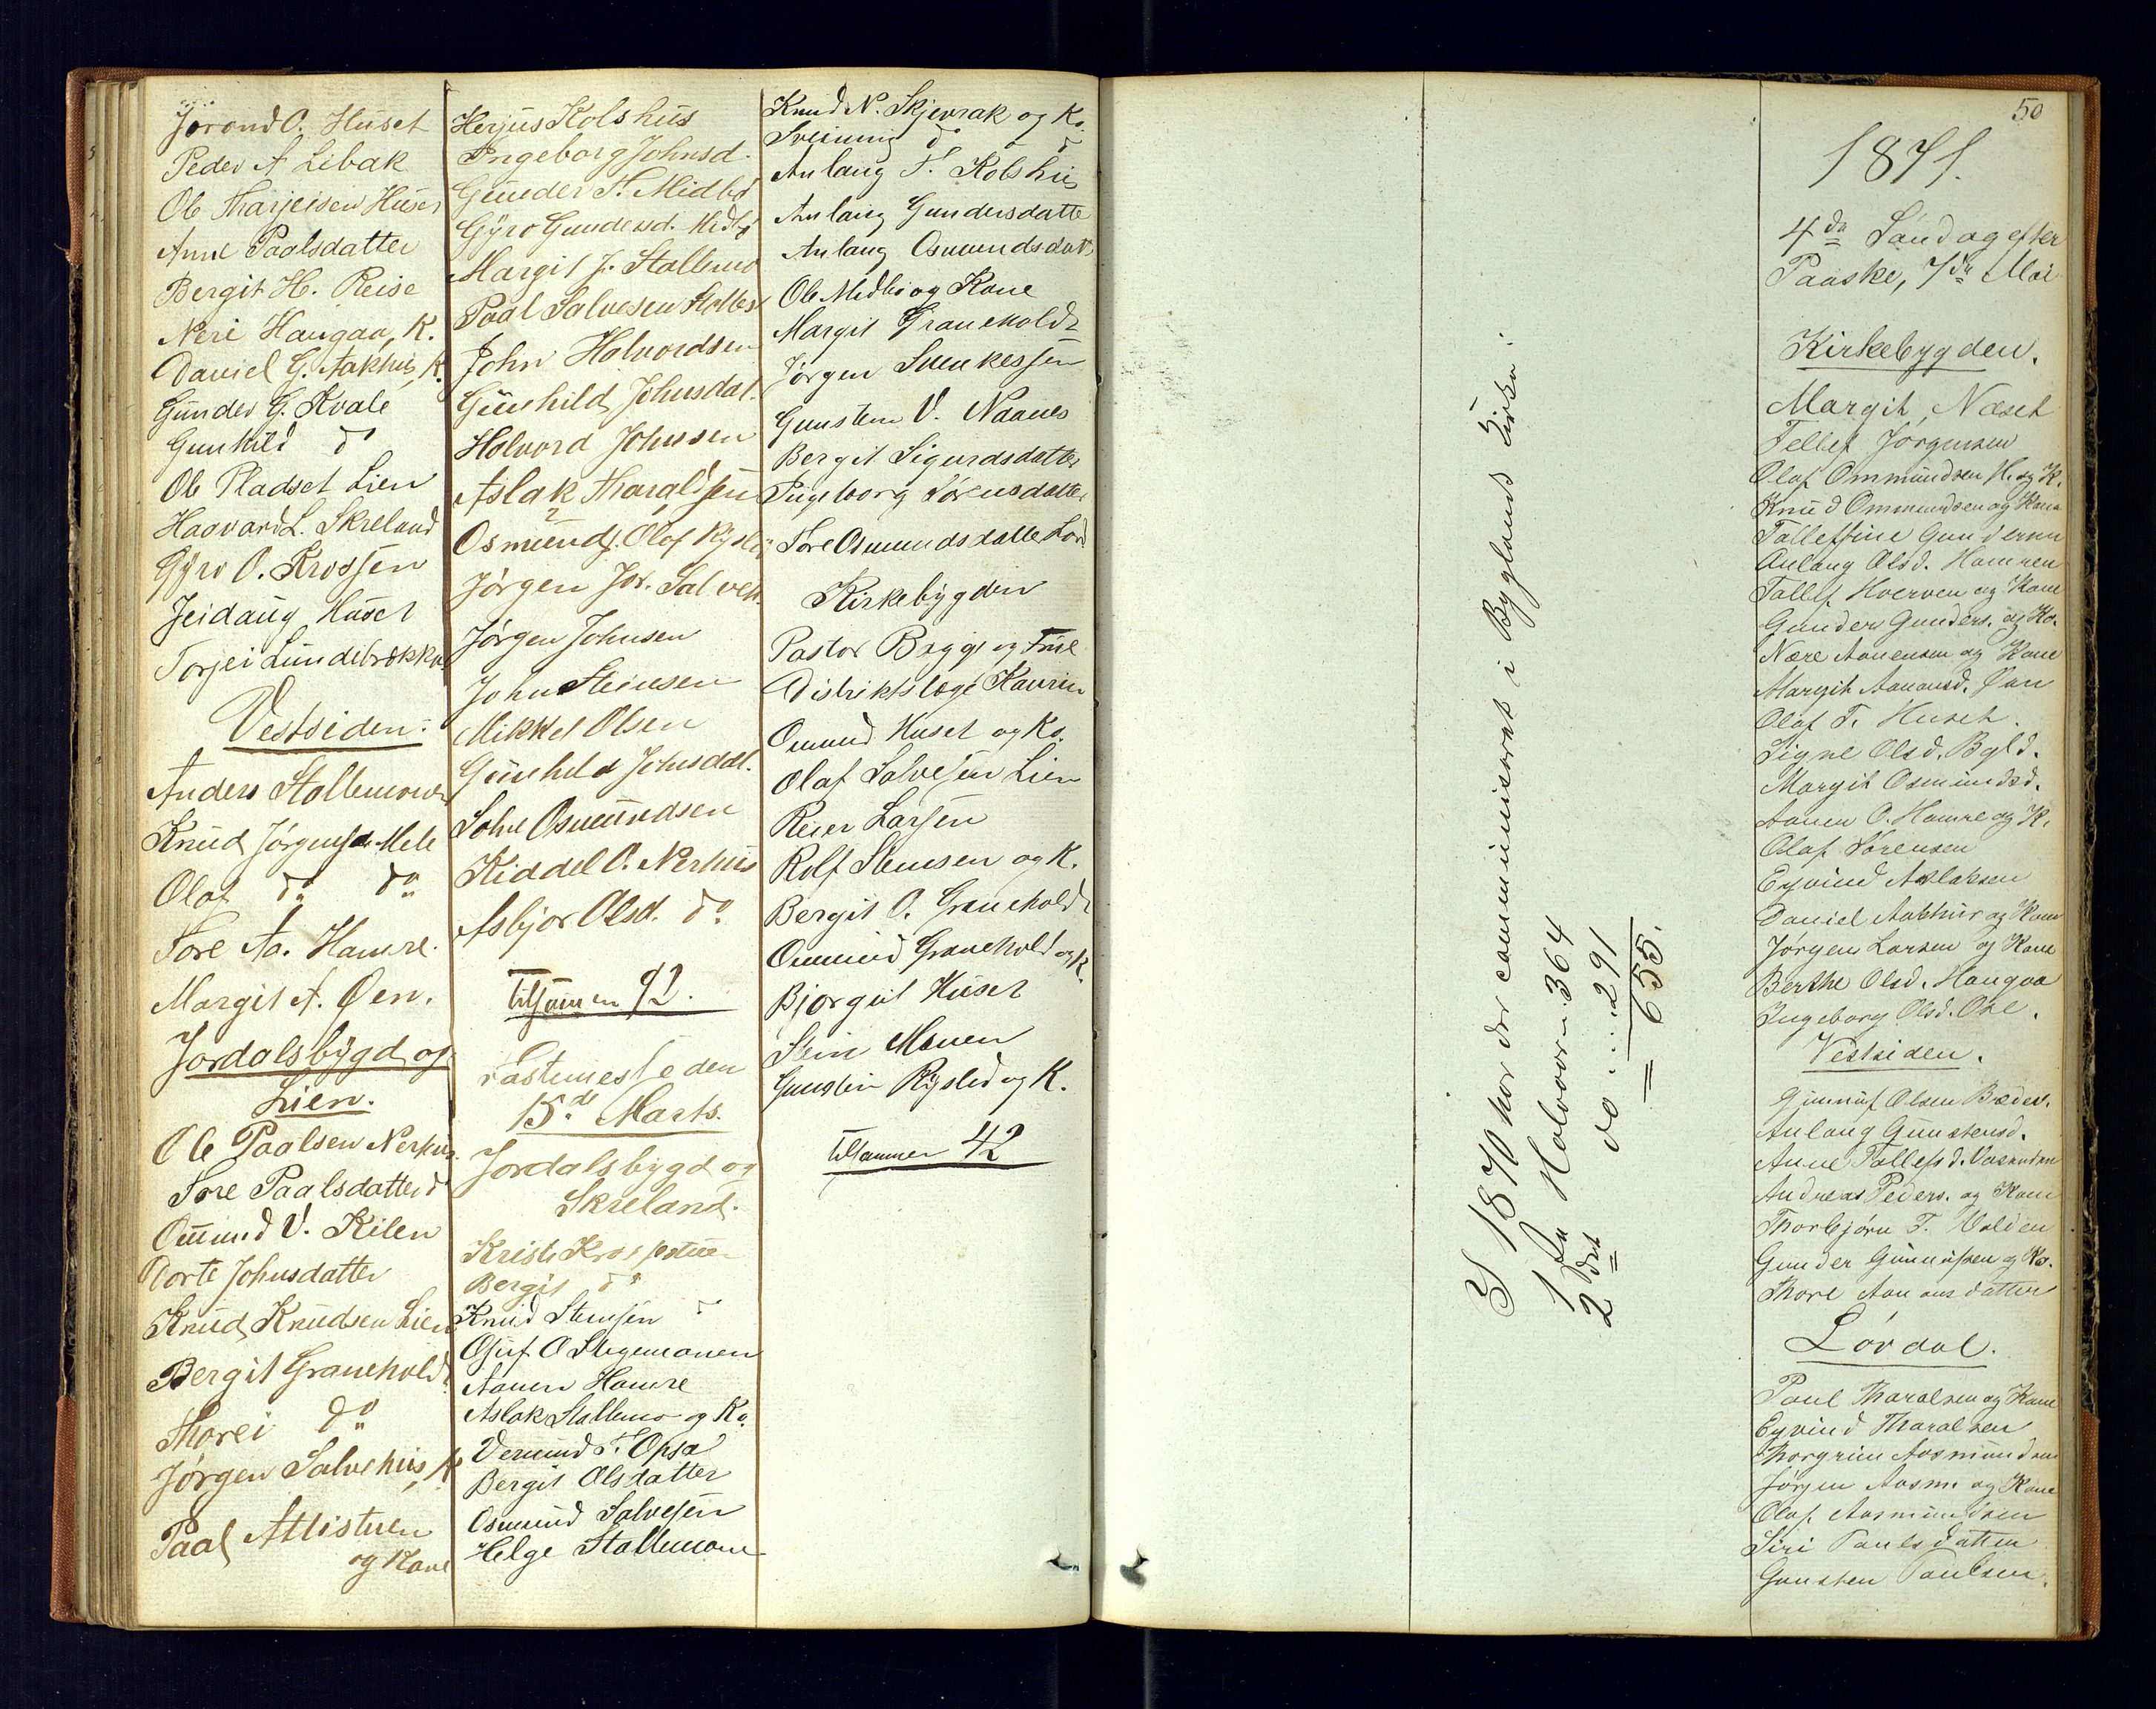 Jorond O. Huset
Peder A Libak
Ole Tharjeisen Huset
Anne Paalsdatter
Bergit H. Reise
Neri Haugaa, K.
Daniel G. Aakhus, K.
Gunder G. Kvale
Gunhild do
Ole Pladset Lien
Haavard L. Skreland
Gyro O. Krossen
Jeidaug Huset
Torjei Lundebrække
Vestsiden.
Anders Stallemoen
Knud Jørgensen Mele
Olaf do do
Tore Aa. Hamre.
Margit A. Øen.
Jordalsbygd og
Lien.
Ole Paalsen Nerhus
Tore Paalsdatter do
Ommund V. Kilen
Dorte Johnsdatter
Knud Knudsen Lien
Bergit Graneholdt
Thorei do
Jørgen Salvehus, K.
Paal Attistuen
og Kone
Herjus Kolshus
Ingeborg Johnsd.
Gunder T. Midbø
Gyro Gundersd. Midbø
Margit J. Stallemo
Paal Salvesen
John Halvordsen
Gunhild Johnsdat.
Halvord Johnsen
Aslak Tharaldsen
Osmund, Olaf Rysta
Jørgen Jør. Salves.
Jørgen Johnsen
John Steinsen
Mikkel Olsen
Gunhild Johnsdat.
Salve Osmundsen
Kiddel O. Nerhus
Asbjør Olsd. do.
tilsammen 92.
Fastemesse den
15de Marts.
Jordalsbygd og
Skreland.
Kristi Krosstuen
Bergit do
Knud Steinsen
Gjuf O Stigemoen
Aanen Hamre
Aslak Stallemo og Ko.
Vermund T. Opsa
Bergit Olsdatter
Osmund Salvesen
Helge Stallemoen
Knud N. Skjevrak og Ko.
Sveinung do do
Anlaug T. Kolshus
Anlaug Gundersdatte
Anlaug Osmundsdat
Ole Midbø og Kone
Margit Graneholdt
Jørgen Sveinkessen
Gunsten V. Naanes
Bergit Sigurdsdatter
Ingeborg Sørensdatter
Tore Osmundsdatter
Kirkebygden
Pastor Bugge og Frue
Distriktslæge Kaurin
Ommund Huset og Ko.
Olaf Salvesen Lien
Reier Larsen
Rolf Steinsen og K.
Bergit O. Graneholdt
Ommund Graneholdt og K.
Bjorgut Huset
Stein Moen
Gunstein Rysted og K.
tilsammen 42
I 1870 har der communiceret i Byglands Kirke:
1ste Halvaar 364
2det do ... 291
= 655.
50
1871.
4de Søndag efter
Paaske, 7de Mai
Kirkebygden.
Margit Næset
Tellef Jørgensen
Olaf Ommundsen H. og K.
Knud Ommundsen og Kone
Anlaug Olsd. Hamren
Tallef Hverven og Kone
Gunder Gunders. og Ko.
Nære Aanensen og Kone
Margit Aanensd. Øen
Olaf T. Huset.
Signe Olsd. Bygld.
Margit Osmundsd.
Aanen O. Hamre og K.
Olaf Sørensen
Eyvind Aslaksen
Daniel Aakhus og Kone
Jørgen Larsen og Kone
Berthe Olsd. Haugaa
Ingeborg Olsd. Ose.
Vestsiden.
Gunnuf Olsen
Anlaug Gunstensd.
Anne Tallefsd.
Andreas Peders. og Kone
Thorbjørn T. Holden
Gunder Gunnufsen og Ko.
Thore Aanonsdatter
Lørdal.
Paul Tharalsen og Kone
Eyvind Tharalsen
Thorgrim Aasmundsen
Jørgen Aasm. og Kone
Olaf Aasmundsen
Siri Paulsdatter
Gunsten Paulsen.